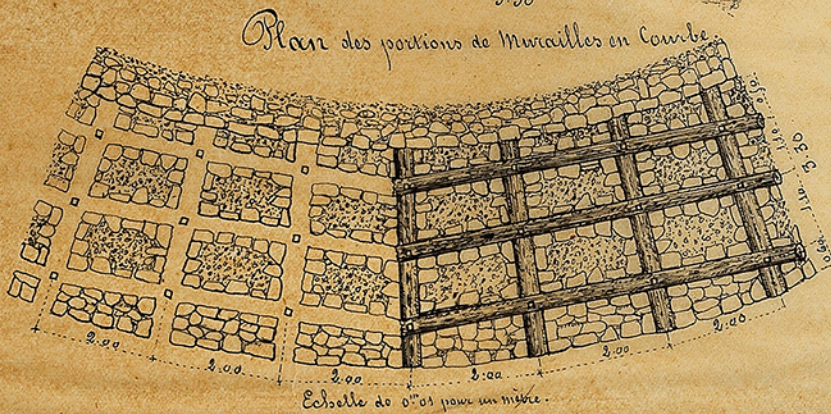 Plan des portions de Murailles en Courbe.
3.30
2.00
2.00
2.00
2.00
2.00
2.00
Echelle de 0m01 pour un mètre.